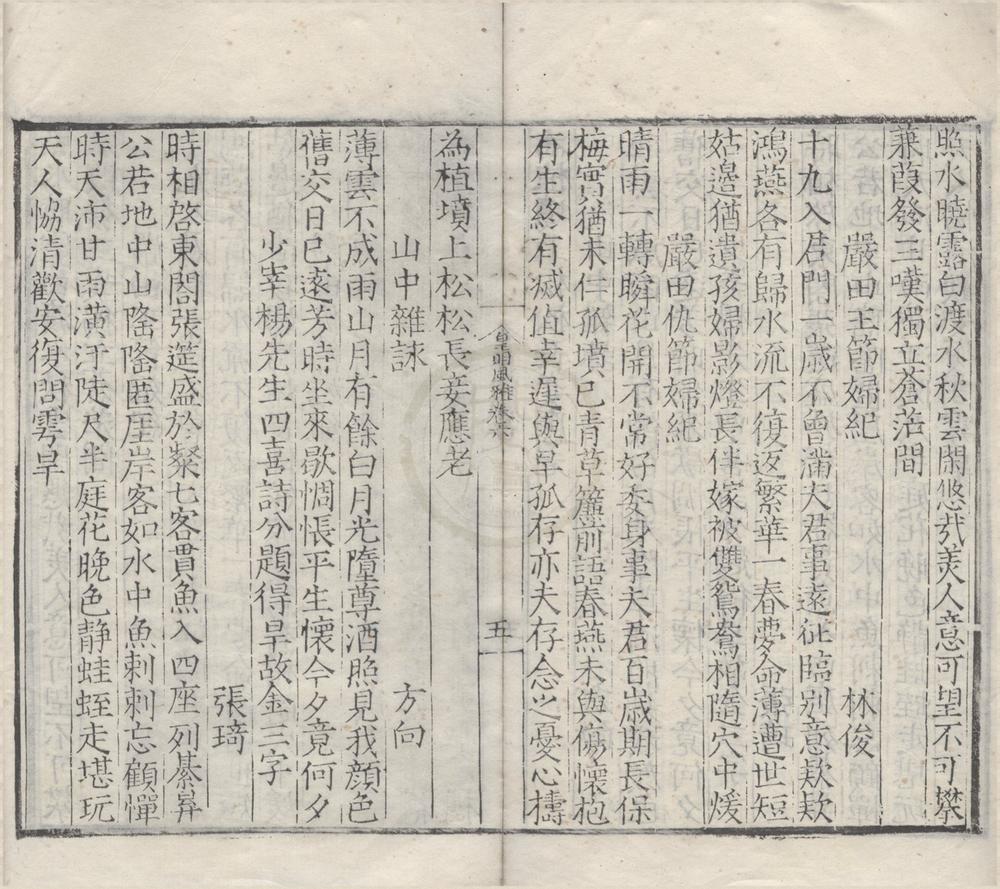 照水曉露白渡水秋雲閑悠哉美人意可望不可攀
蒹葭發三嘆獨立蒼茫間
嚴田王節婦紀 林俊
十九入君門一歲不曾滿夫君事遠征臨別意欵欵
鴻燕各有歸水流不復返繁華一春夢命薄遭世短
姑邉猶遺孩婦影燈長伴嫁被雙鴛鴦相隨穴中煖
嚴田仇節婦紀
晴雨一轉瞬花開不常好委身事夫君百歲期長保
梅實猶未仁孤墳已青草簾前語春燕未與傷懷抱
有生終有滅值幸遲與早孤存亦夫存念之憂心擣
皇明風雅卷六
五
為植墳上松松長妾應老
山中雜詠 方向
薄雲不成雨山月有餘白月光墮尊酒照見我顔色
舊交日已遠芳時坐來歇惆悵平生懷今夕竟何夕
少宰楊先生四喜詩分題得旱故金三字
張琦
時相啓東閣張筵盛於粲七客貫魚入四座列綦昇
公若地中山隆隆匿厓岸客如水中魚刺刺忘顧憚
時天沛甘雨潢汙陡尺半庭花晚色静蛙蛭走堪玩
天人恊清歡安復問雩旱